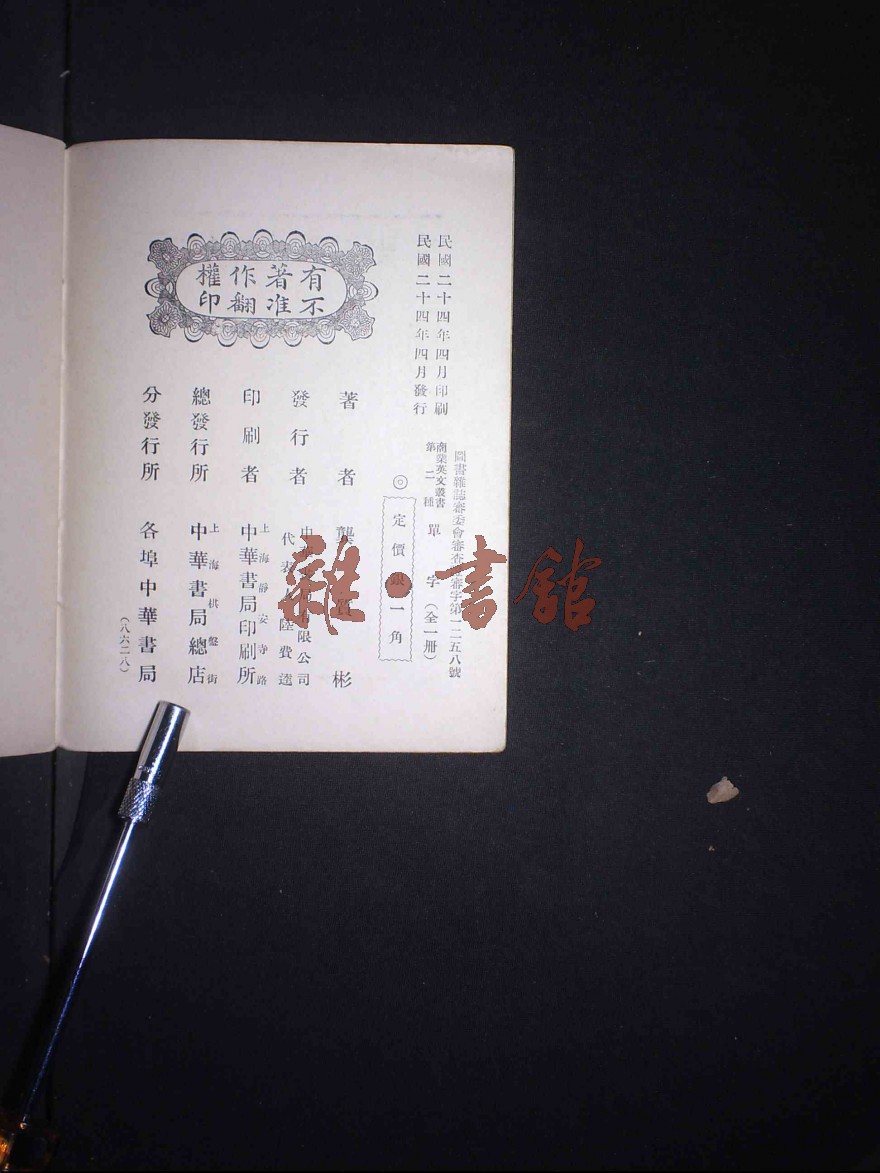 民國二十四年四月印刷
民國二十四年四月發行
圖書雜誌審委會審查證審字第一二五八號
商業英文叢書
第二種
單字(全一冊)
◎
定價銀一角
有著作權
不准翻印
著者
龔質彬
發行者
中華書局有限公司
代表人陸費逵
印刷者
上海靜安寺路
中華書局印刷所
總發行所
上海棋盤街
中華書局總店
分發行所
各埠中華書局
(八六二八)
雜·書館